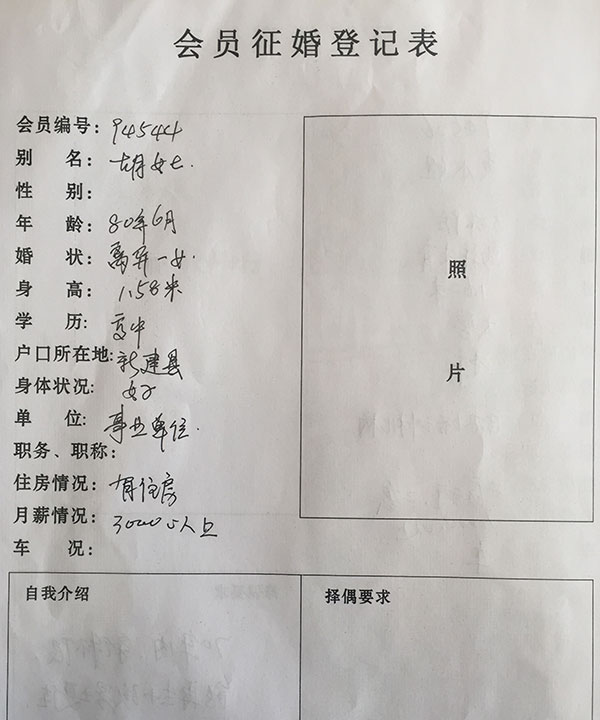 会员征婚登记表
会员编号: 94544
别 名: 胡女士.
性 别:
年 龄: 80年6月
婚 状: 离异一女.
身 高: 1.58米
学 历: 高中
户口所在地: 新建县
身体状况: 好
单 位: 事业单位.
职务、职称:
住房情况: 有住房
月薪情况: 3000以上
车 况:
照
片
自我介绍
择偶要求